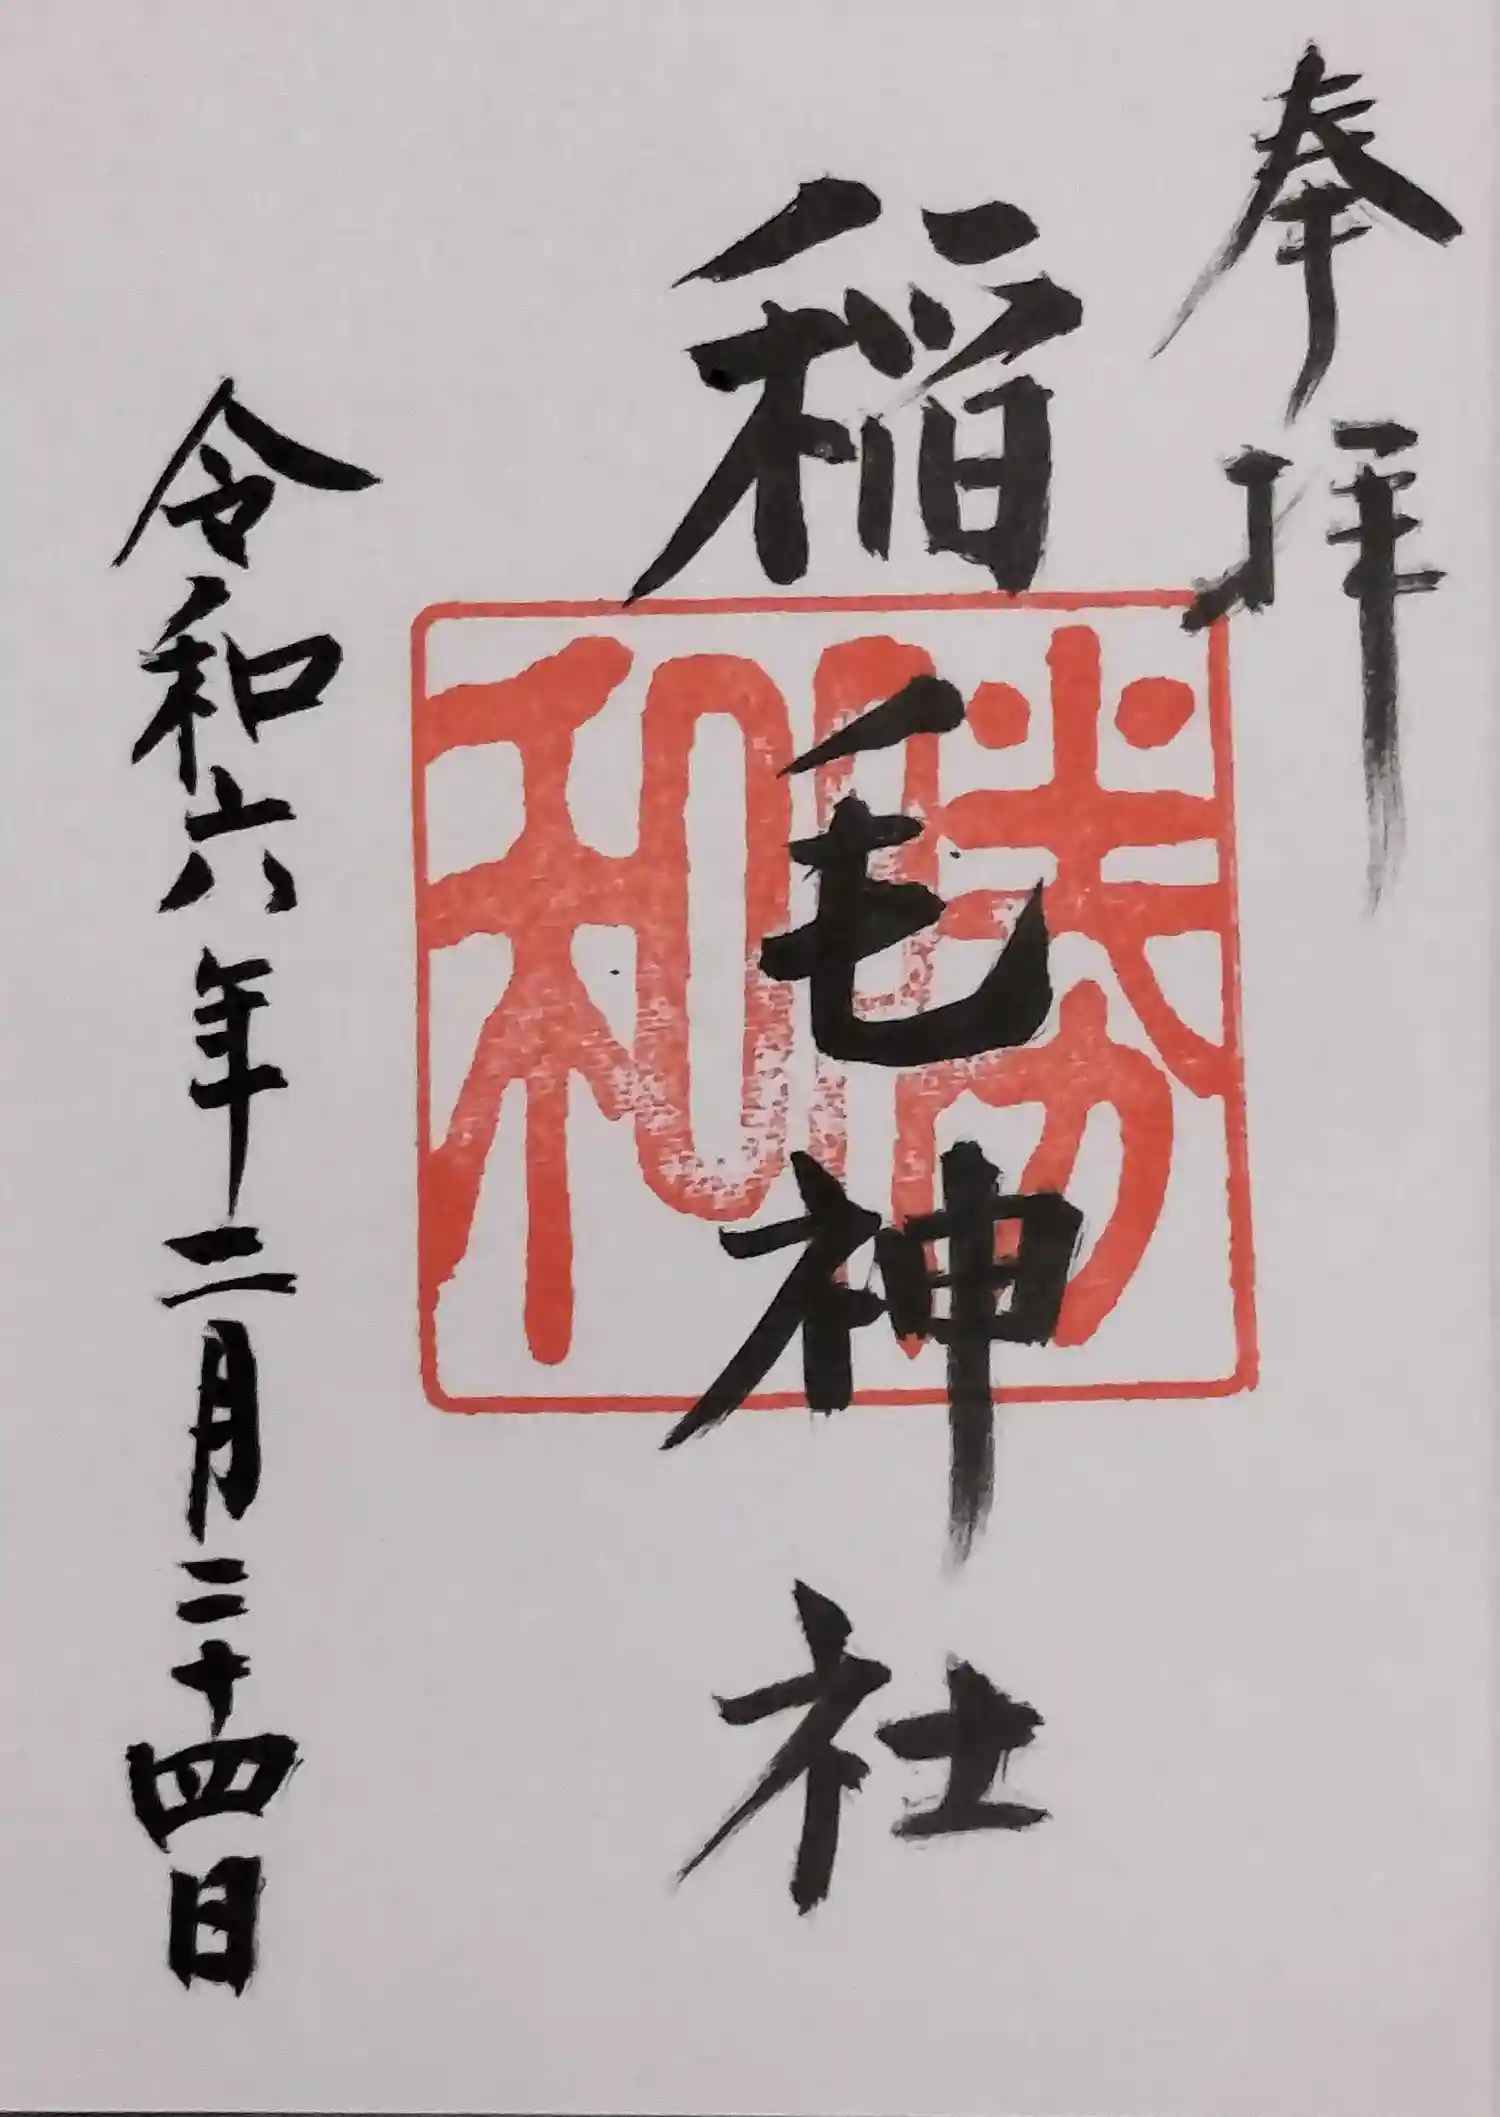 奉拝
稲毛神社
勝和
令和六年二月二十四日